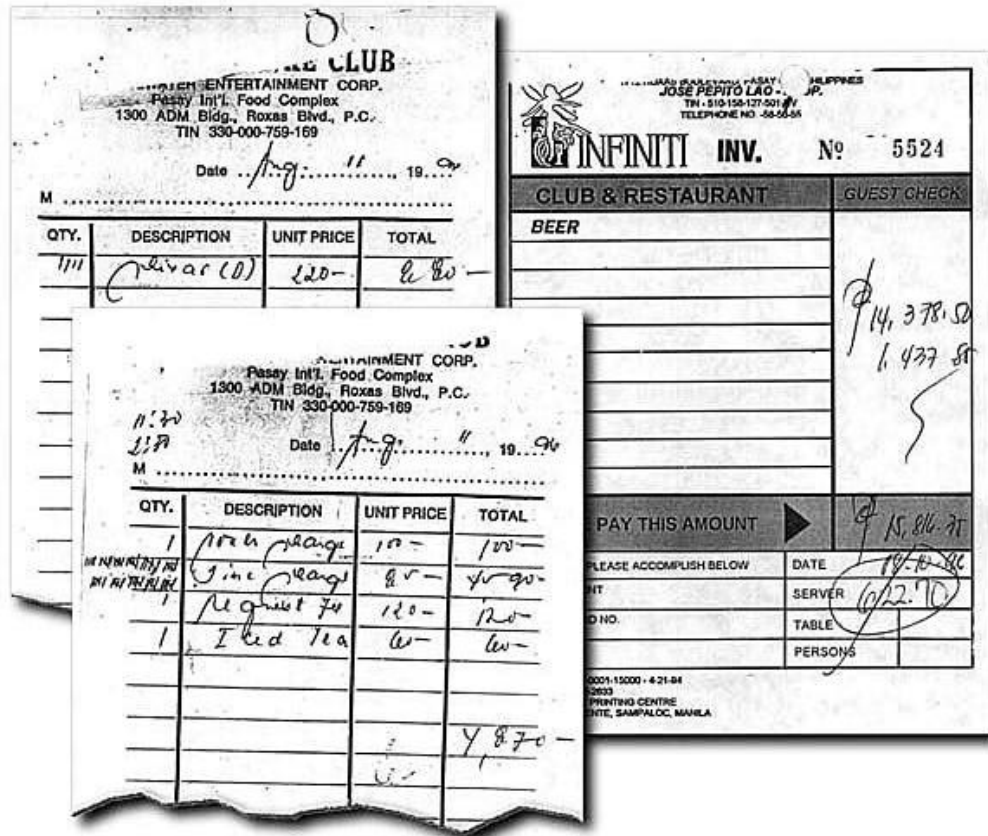 CLUB
ENTERTAINMENT CORP.
Pasay Int'l. Food Complex
1300 ADM Bldg., Roxas Blvd., P.C.
TIN 330-000-759-169
Date Aug. 11 19
M
QTY. DESCRIPTION UNIT PRICE TOTAL
(D) 220- 880-
CORP.
Pasay Int'l. Food Complex
1300 ADM Bldg., Roxas Blvd., P.C.
TIN 330-000-759-169
11:30
Date Aug. 11 19 96
M
QTY. DESCRIPTION UNIT PRICE TOTAL
1 100- 100-
Time
1 120- 120-
1 Iced Tea 60- 60-
4,870-
JOSE PEPITO LAO
TELEPHONE NO.
INFINITI INV. Nº 5524
CLUB & RESTAURANT GUEST CHECK
BEER
₱ 14,378.50
1,437.85
PAY THIS AMOUNT ₱ 15,816.35
PLEASE ACCOMPLISH BELOW DATE
SERVER 622.70
NO. TABLE
PERSONS
0001-15000 - 4-21-94
PRINTING CENTRE
SAMPALOC, MANILA